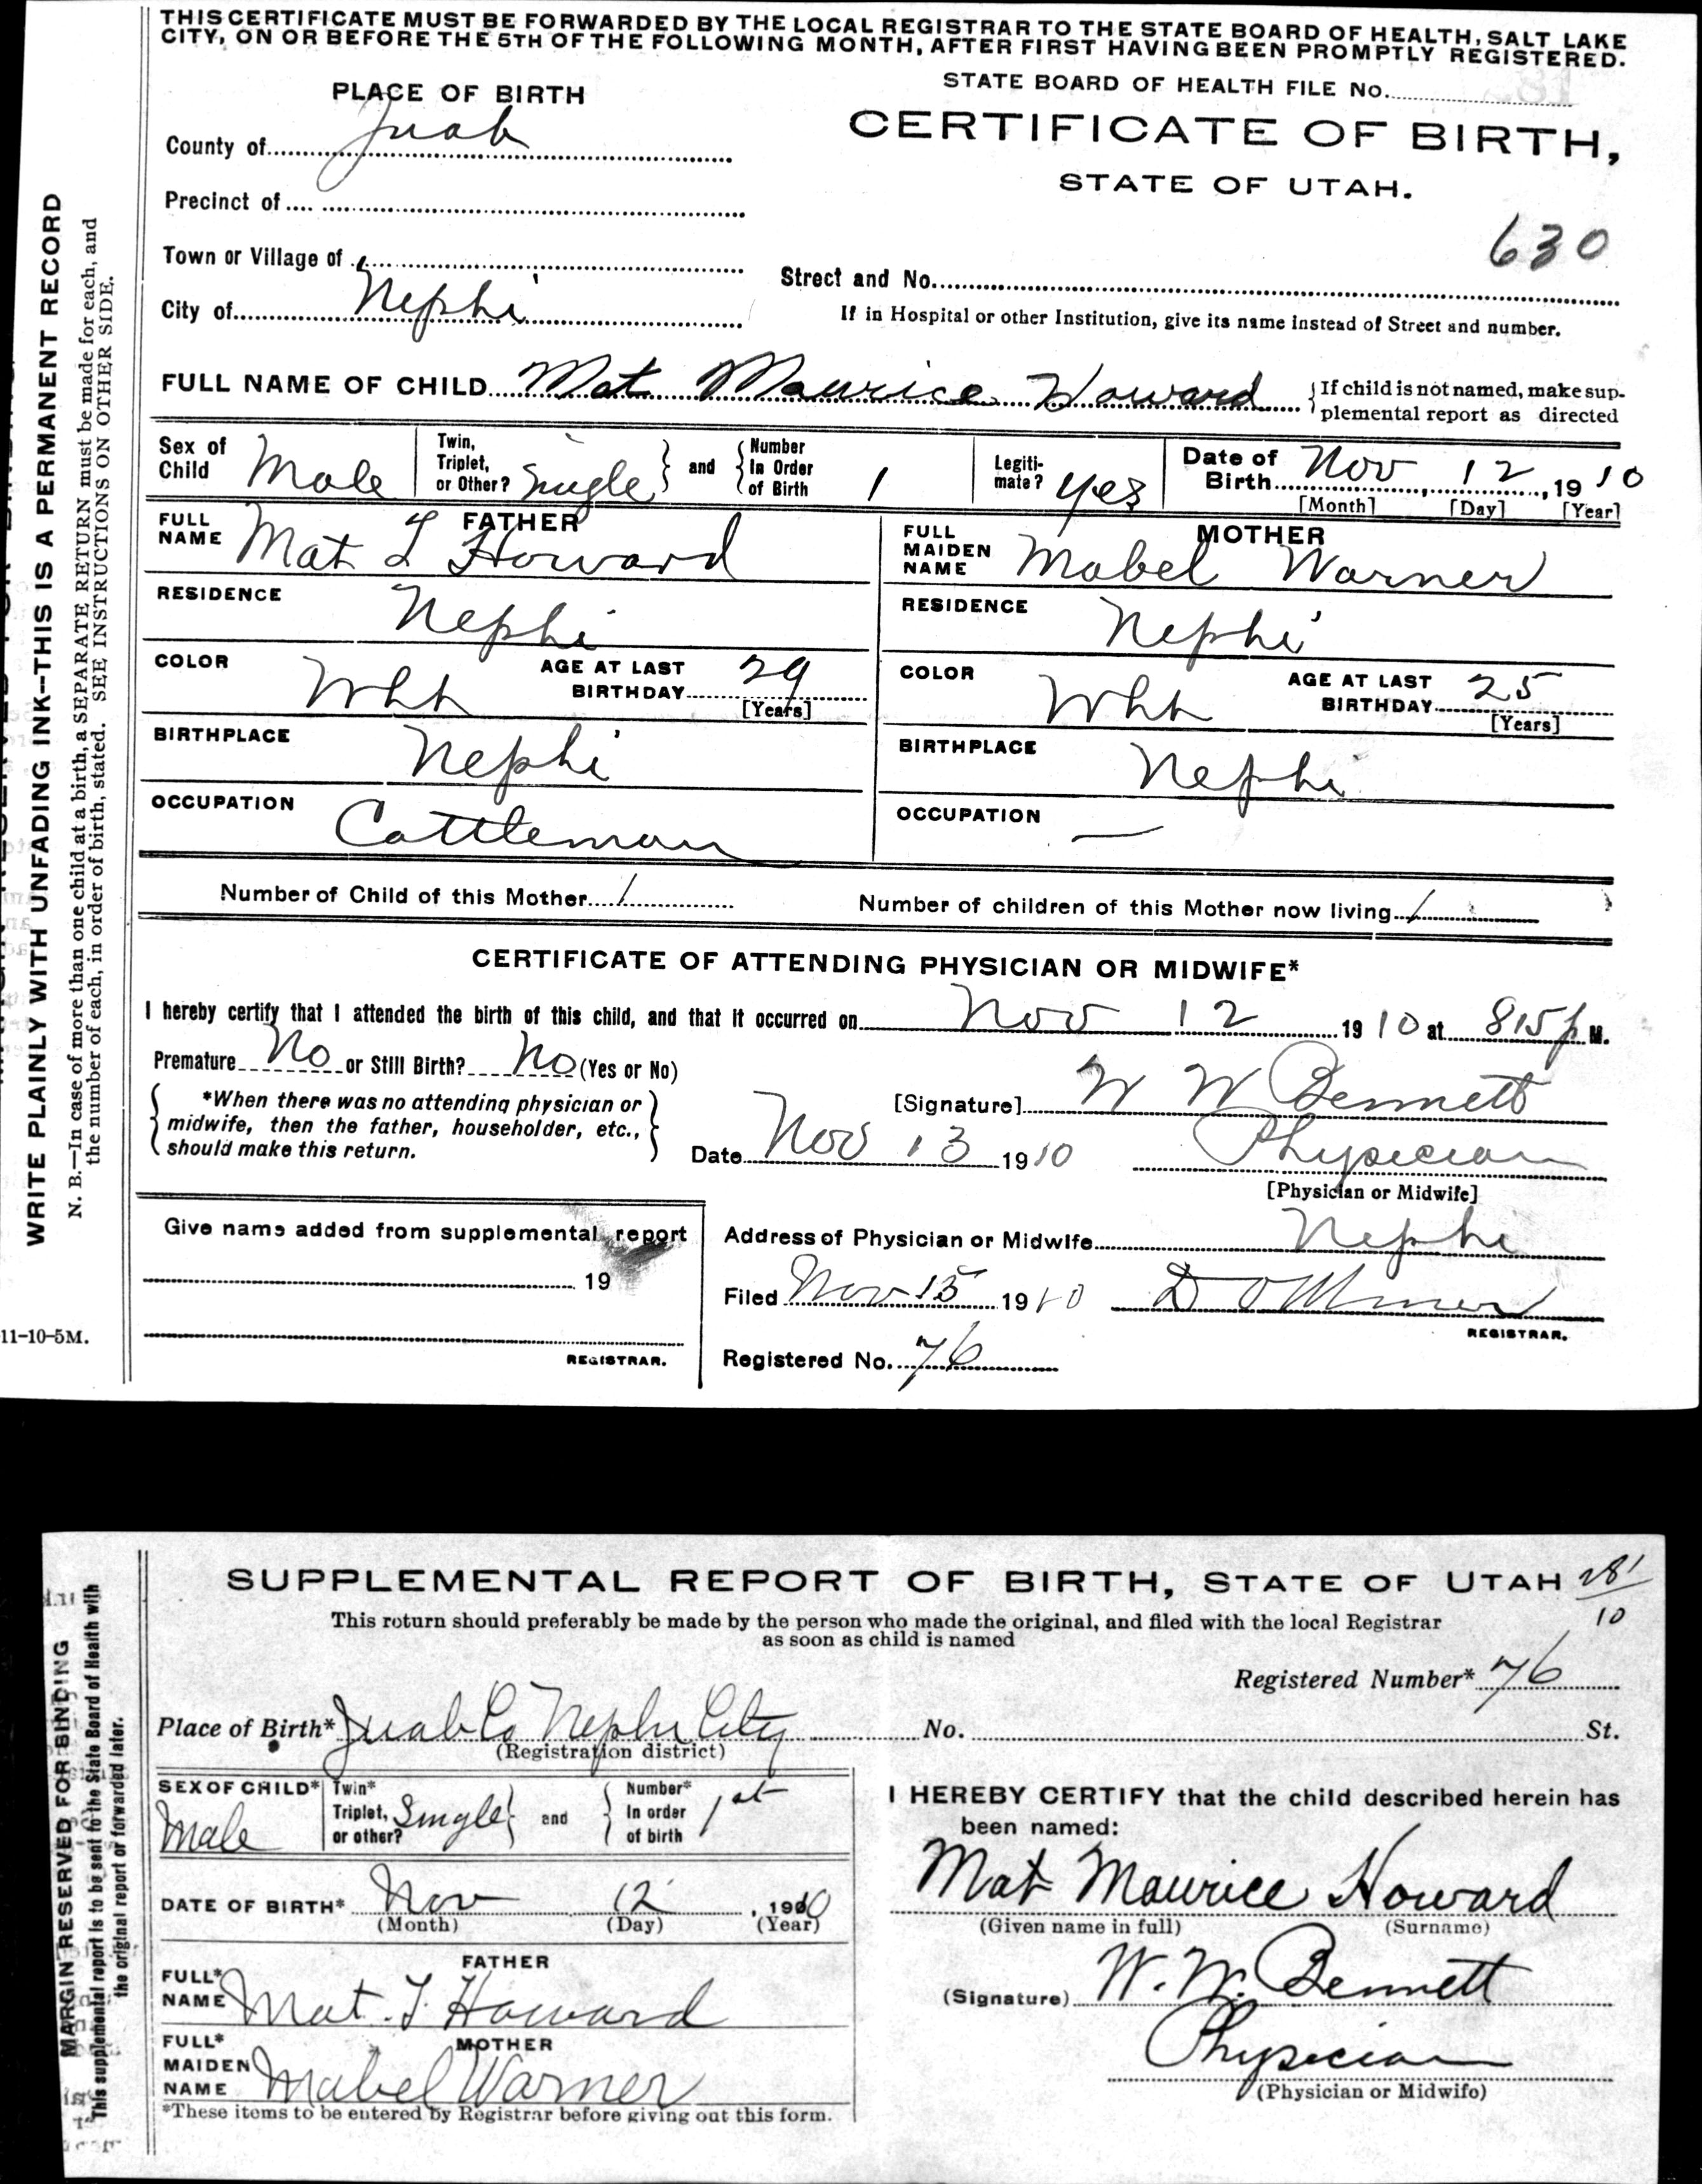 THIS CERTIFICATE MUST BE FORWARDED BY THE LOCAL REGISTRAR TO THE STATE BOARD OF HEALTH, SALT LAKE
CITY, ON OR BEFORE THE 5TH OF THE FOLLOWING MONTH, AFTER FIRST HAVING BEEN PROMPTLY REGISTERED.
STATE BOARD OF HEALTH FILE No.
PLACE OF BIRTH
CERTIFICATE OF BIRTH,
STATE OF UTAH.
County of Juab
Precinct of
630
Town or Village of
Street and No.
City of Nephi
If in Hospital or other Institution, give its name instead of Street and number.
FULL NAME OF CHILD Mat Maurice Howard { If child is not named, make sup-
plemental report as directed
Sex of Child Male
Twin, Triplet, or Other? Single } and { Number In Order of Birth 1
Legiti-mate? yes
Date of Birth Nov 12, 1910
[Month] [Day] [Year]
FATHER
FULL NAME Mat L Howard
MOTHER
FULL MAIDEN NAME Mabel Warner
RESIDENCE Nephi
RESIDENCE Nephi
COLOR Wht AGE AT LAST BIRTHDAY 29 [Years]
COLOR Wht AGE AT LAST BIRTHDAY 25 [Years]
BIRTHPLACE Nephi
BIRTHPLACE Nephi
OCCUPATION Cattleman
OCCUPATION —
Number of Child of this Mother 1 Number of children of this Mother now living 1
CERTIFICATE OF ATTENDING PHYSICIAN OR MIDWIFE*
I hereby certify that I attended the birth of this child, and that it occurred on Nov 12 1910 at 815 p M.
Premature No or Still Birth? No (Yes or No)
{ *When there was no attending physician or
midwife, then the father, householder, etc.,
should make this return. }
[Signature] W W Bennett
Date Nov 13 1910 Physician
[Physician or Midwife]
Give name added from supplemental report
19
REGISTRAR.
Address of Physician or Midwife Nephi
Filed Nov 15 1910 D O Miner
REGISTRAR.
Registered No. 76
WRITE PLAINLY WITH UNFADING INK--THIS IS A PERMANENT RECORD
N. B.—In case of more than one child at a birth, a SEPARATE RETURN must be made for each, and
the number of each, in order of birth, stated. SEE INSTRUCTIONS ON OTHER SIDE.
11-10-5M.
SUPPLEMENTAL REPORT OF BIRTH, STATE OF UTAH 281
10
This return should preferably be made by the person who made the original, and filed with the local Registrar
as soon as child is named
Registered Number* 76
Place of Birth* Juab Co Nephi City No. St.
(Registration district)
SEX OF CHILD* Male
Twin* Triplet, or other? Single } and { Number* In order of birth 1st
DATE OF BIRTH* Nov 12, 1910
(Month) (Day) (Year)
FATHER
FULL* NAME Mat. L. Howard
MOTHER
FULL* MAIDEN NAME Mabel Warner
*These items to be entered by Registrar before giving out this form.
I HEREBY CERTIFY that the child described herein has
been named:
Mat Maurice Howard
(Given name in full) (Surname)
(Signature) W. W. Bennett
Physician
(Physician or Midwife)
MARGIN RESERVED FOR BINDING
This supplemental report is to be sent to the State Board of Health with
the original report or forwarded later.